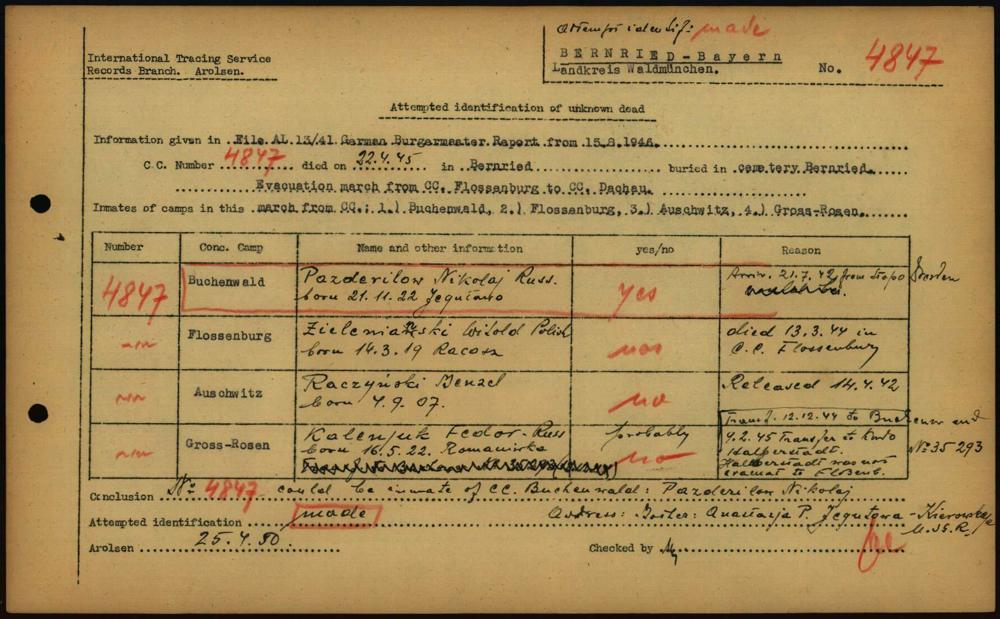 Attempt identif: made
International Tracing Service
Records Branch. Arolsen.
BERNRIED-Bayern
Landkreis Waldmünchen.
No. 4847
Attempted identification of unknown dead
Information given in File AL 13/41 German Burgermaster Report from 15.8.1946.
C.C. Number 4847 died on 22.4.45 in Bernried buried in cemetery Bernried.
Evacuation march from CC. Flossenburg to CC. Dachau.
Inmates of camps in this march from CC.: 1.) Buchenwald, 2.) Flossenburg, 3.) Auschwitz, 4.) Gross-Rosen.
Number Conc. Camp Name and other information yes/no Reason
4847 Buchenwald Pazderilow Nikolaj Russ. yes Arriv. 21.7.42 from Stapo Dresden
born 21.11.22 Jegutowo
-"- Flossenburg Zieleniański Witold Polish died 13.3.44 in
born 14.3.19 Racosz C.C. Flossenburg
-"- Auschwitz Raczyński Wenzel no Released 14.4.42
born 4.9.07.
-"- Gross-Rosen Kalenjuk Fedor-Russ probably no Transf. 12.12.44 to
born 16.5.22. Romanirka 4.2.45 Transfer to Kdo No 35293
Halberstadt.
Halberstadt was not
evacuat to Floßenb.
Conclusion No 4847 could be inmate of CC. Buchenwald: Pazderilow Nikolaj
Attempted identification made Address: Anastasja P. Jegutowa
Arolsen 25.4.50. Checked by